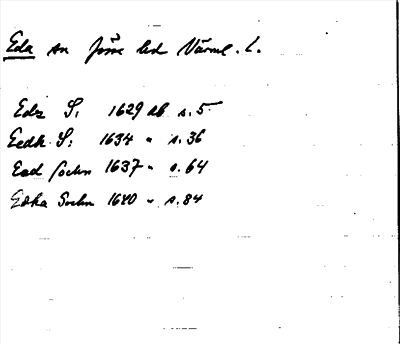 Eda sn Jösse hd Värml. L.
Eda S: 1629 jb s. 5
Eedh S: 1634 " s. 36
Eed sochn 1637 " s. 64
Edha Sochn 1640 " s. 84